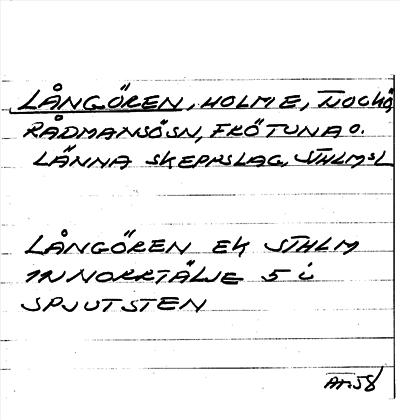 LÅNGÖREN, HOLME, TJOCKÖ,
RÅDMANSÖSN, FRÖTUNA O.
LÄNNA SKEPPSLAG, STHLMSL
LÅNGÖREN EK STHLM
1N NORRTÄLJE 5 i
SPJUTSTEN
58